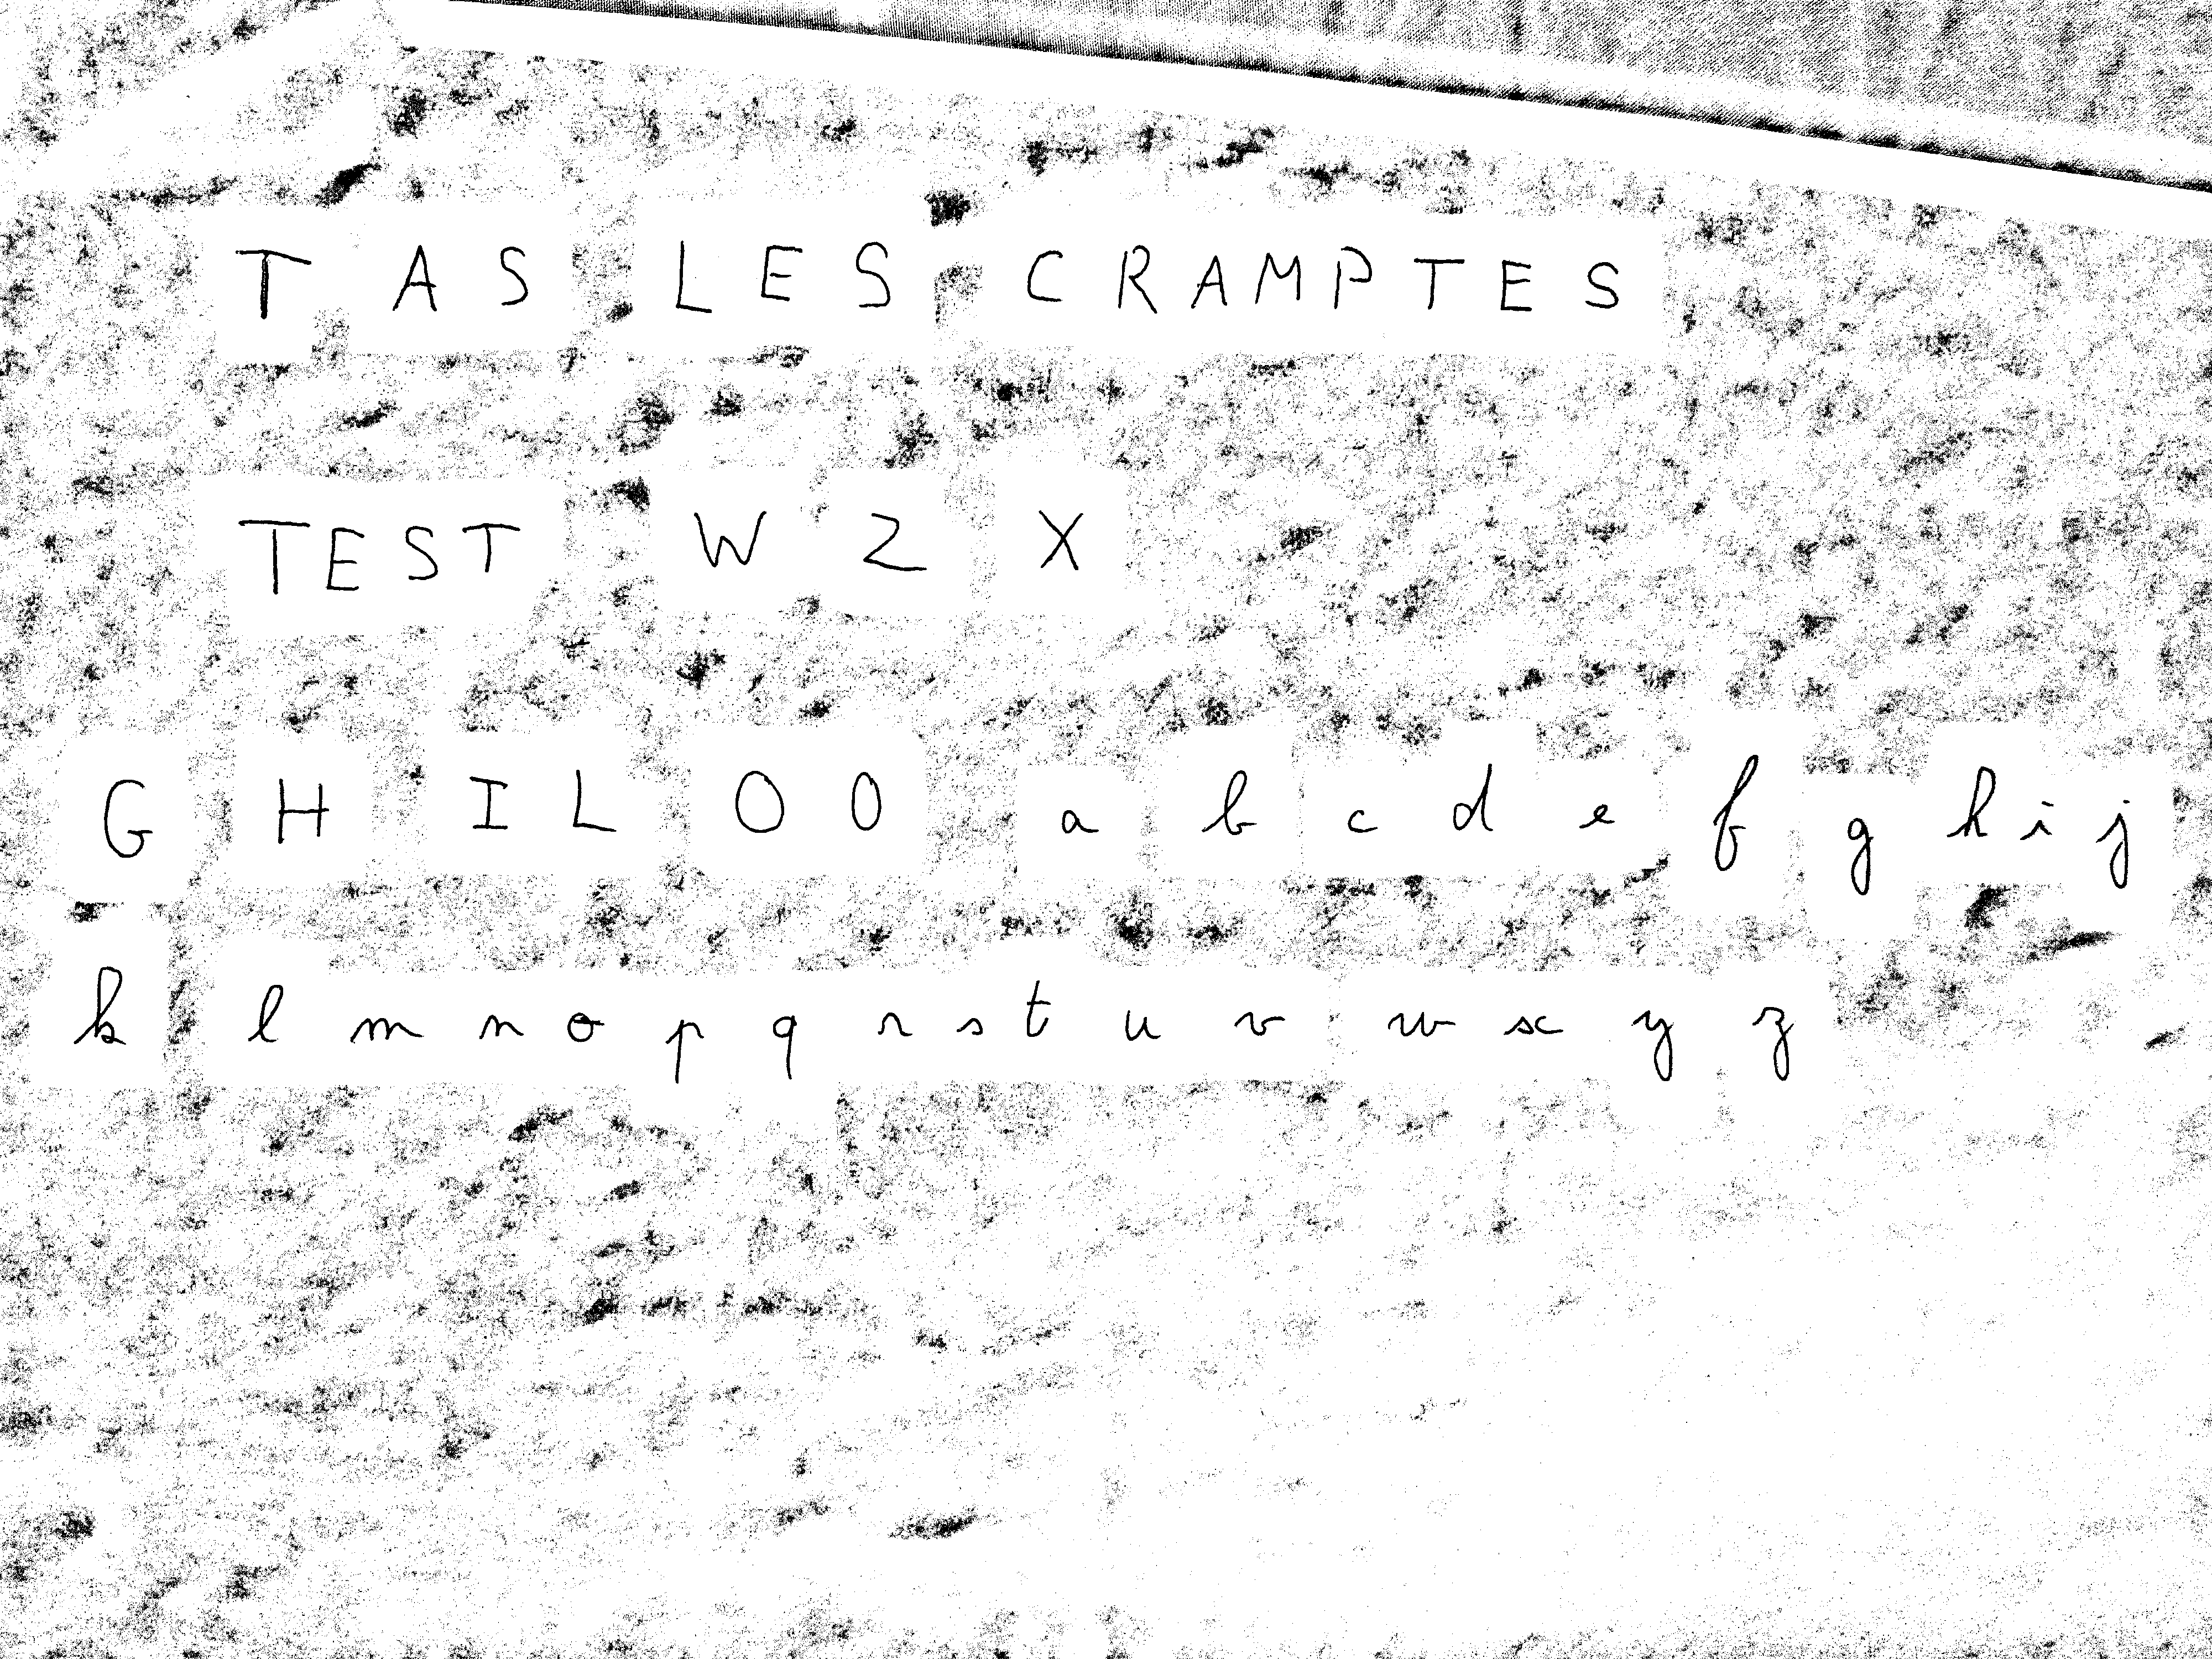 T AS LES CRAMPTES
TEST W Z X
G H I L O O a b c d e f g h i j
k l m n o p q r s t u v w x y z